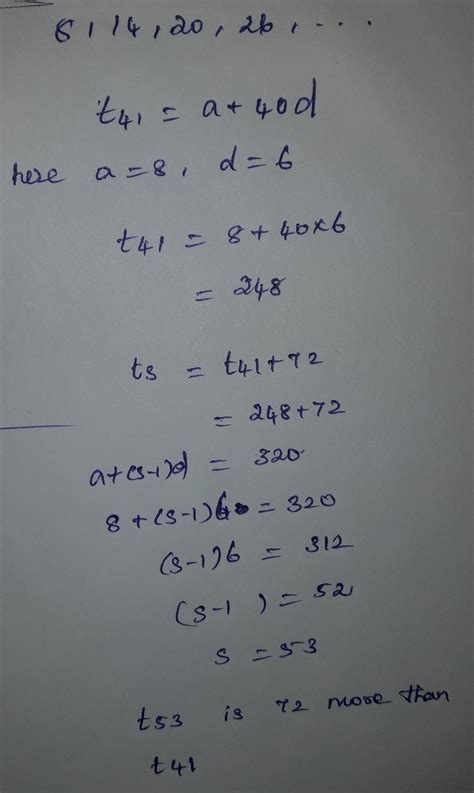 8, 14, 20, 26, ....
t41 = a+40d
here a=8, d=6
t41 = 8+40×6
= 248
ts = t41+72
= 248+72
a+(s-1)d = 320
8+(s-1)6 = 320
(s-1)6 = 312
(s-1) = 52
s = 53
t53 is 72 more than
t41